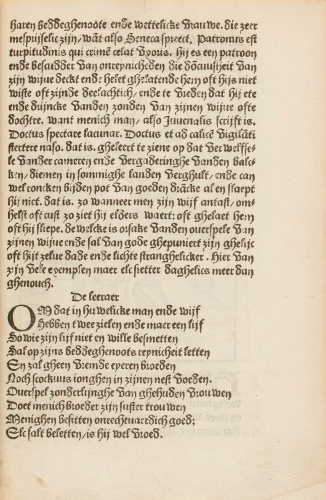 haren beddeghenoote ende wettelicke vrauwe. die zeer
mespriselic zijn/ wāt also Seneca spreect. Patronus est
turpitudinis qui crimē celat vxoris. Hij es een patroon
ende bescudder van onreynicheden die
zijn wijue dect ende helet ghelatende hem oft hijs niet
wiste oft zijnde deelachtich/ ende te vreden dat hij ete
ende druncke vanden zonden van zijnen wijue ofte
dochtre. want menich man/ also Juuenalis scrijft is.
Doctus spectare lacunar. Doctus et ad calicē vigilāti
stertere naso. dat is. gheleert te ziene op dat verwelfse-
le vander cameren ende vergaderinghe vanden balc-
ken/ diemen in sommighe landen verghult/ ende can
wel roncken bijden pot van goeden drācke al en slaept
hij niet. dat is. zo wanneer men zijn wijf antast/ om-
helst oft cust zo ziet hij elders waert: oft ghelaet hem
oft hij sliepe. de welcke is orsake vanden ouerspele van
zijnen wijue ende sal van gode ghepuniert zijn ghelijc
oft hijt zelue dade ende lichte stranghelicker. Hier van
zijn vele exemplen maer elc sietter daghelics meer dan
ghenouch.
De leeraer
OMdat in huwelicke man ende wijf
Hebben twee zielen ende maer een lijf
So wie zijn lijf niet en wille besmetten
Sal op zijns beddeghenoots reynicheit letten
En zal gheen vremde eyeren broeden
Noch scockuuts ionghen in zijnen nest voeden.
Ouerspel zonderlijnghe van ghehuden vrouwen
Doet menich broeder zijn suster trouwen
Menighen besitten onrechtuaerdich goed:
Elc salt beletten/ is hij wel vroed.